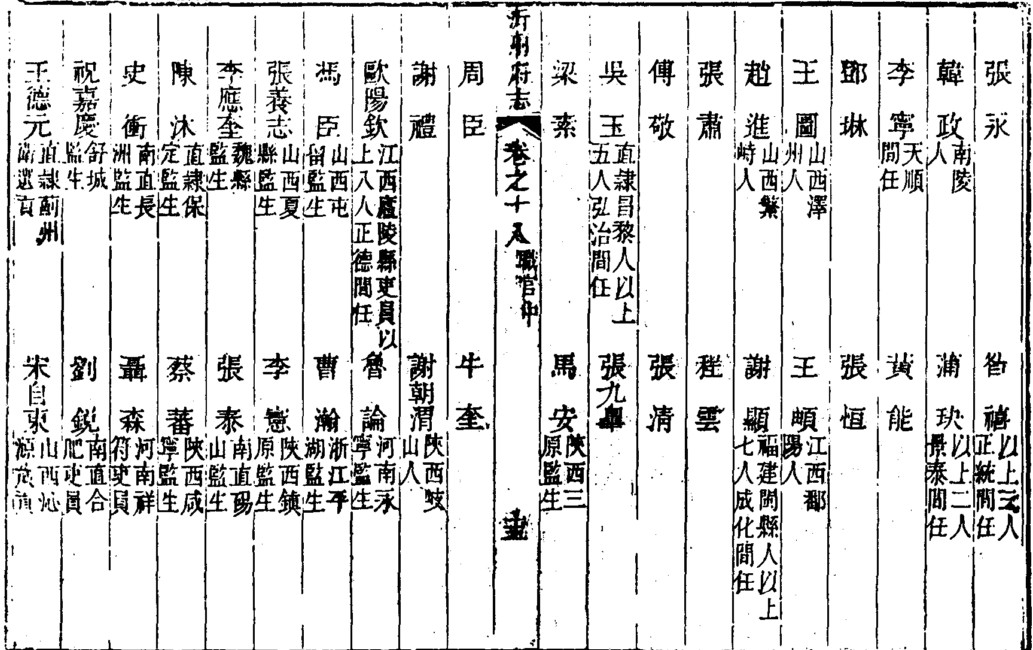 張永　昝禧以上三人正統間任
韓政南陵人　蒲玦以上二人景泰間任
李寧天順間任　黃能
鄧琳　張恒
王圖山西澤州人　王𬱖江西鄱陽人
趙進山西繁峙人　謝顯福建閩縣人以上七人成化間任
張肅　程雲
傅敬　張清
吳玉直隸昌黎人以上五人弘治間任　張九
梁素　馬安陝西三原監生
沂州府志　卷之十八　職官中
周臣　牛奎
謝禮　謝朝渭陝西岐山人
歐陽欽江西廬陵縣吏員以上八人正德間任　魯論河南永寧監生
馮臣山西屯留監生　曹瀚浙江平湖監生
張養志山西夏縣監生　李憲陝西鎮原監生
李應奎魏縣監生　張泰南直碭山監生
陳沐直隸保定監生　蔡蕃陝西咸寧監生
史衝南直長洲監生　聶森河南祥符吏員
祝嘉慶舒城監生　劉銳南直合肥吏員
王德元直隸薊州衛選貢　宋自東山西沁源